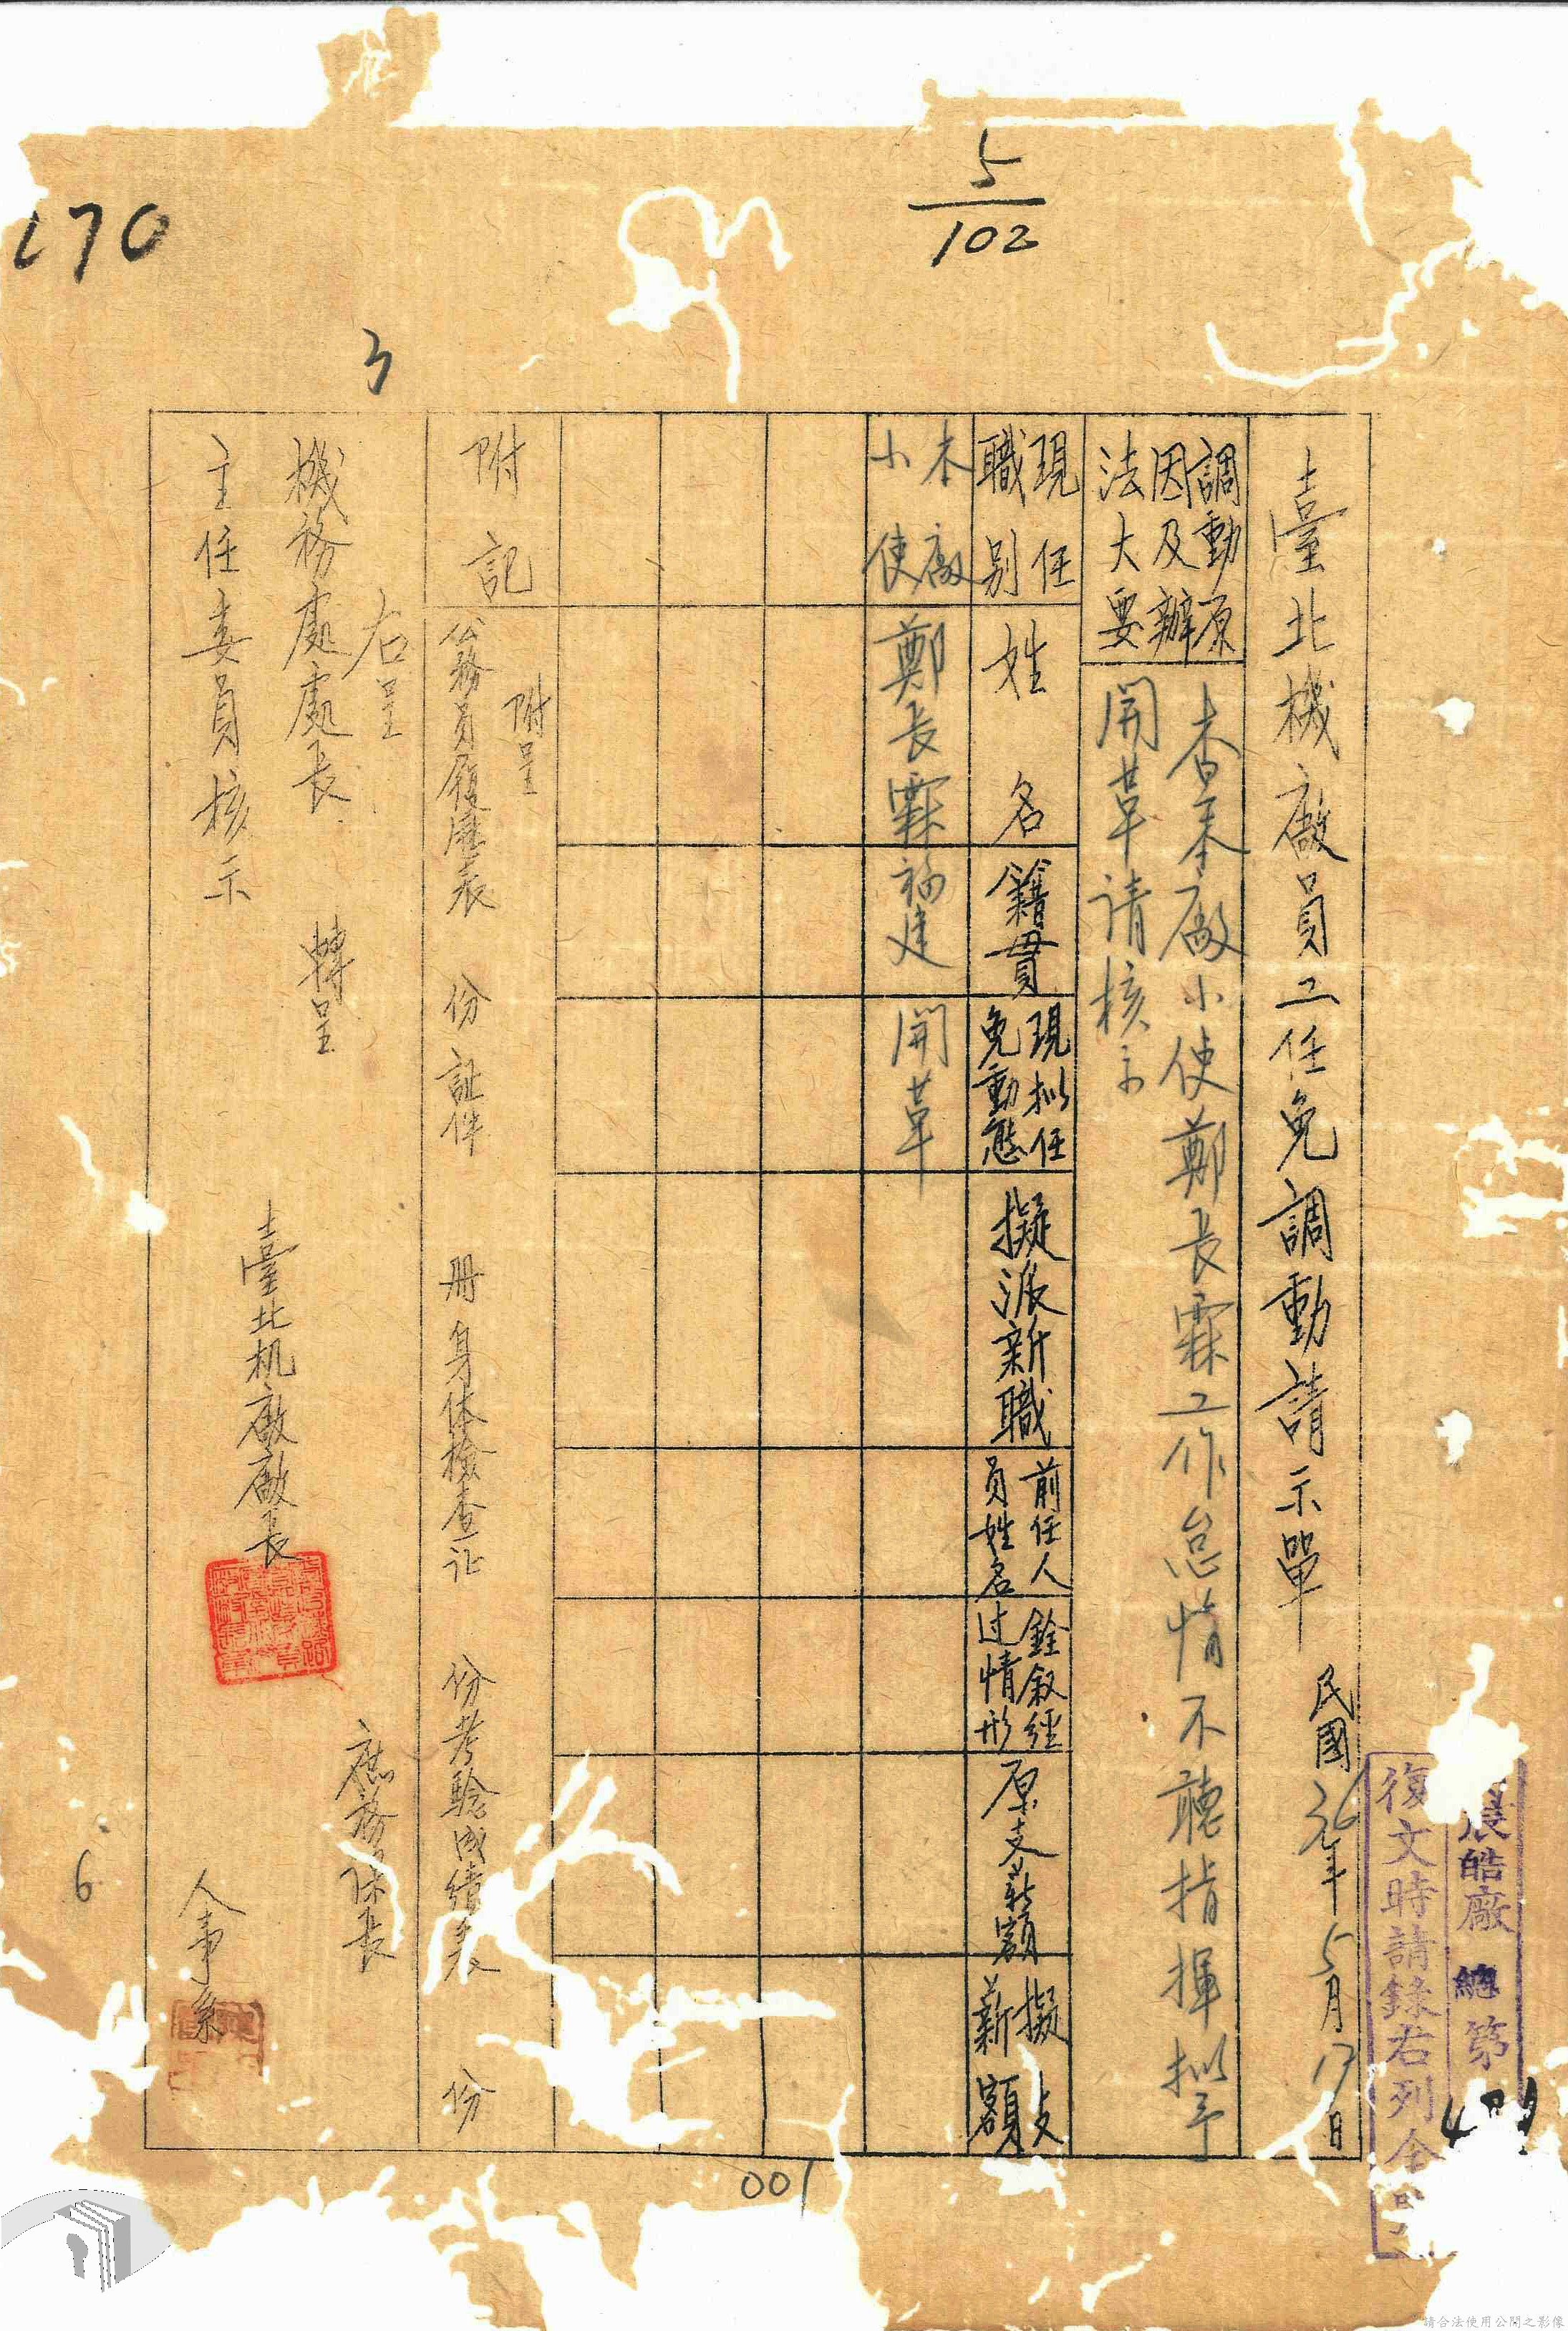 5/102
170
3
臺北機廠員工任免調動請示單
民國36年5月17日
晨皓廠 總 第
復文時請錄右列全
調動原因及辦法大要
查本廠小使鄭長霖工作怠惰不聽指揮拟予
開革请核示
現任職別
姓名
籍貫
現拟任免動態
擬派新職
前任人員姓名
銓叙經过情形
原支薪額
擬支薪額
本廠小使
鄭长霖
福建
開革
附記
附呈
公務員履歷表 份 証件 册 身体檢查证 份 考驗成績表 份
右呈
機務處處長 轉呈
主任委員核示
臺北机廠廠長
庶務課長
人事系
6
001
請合法使用公開之影像